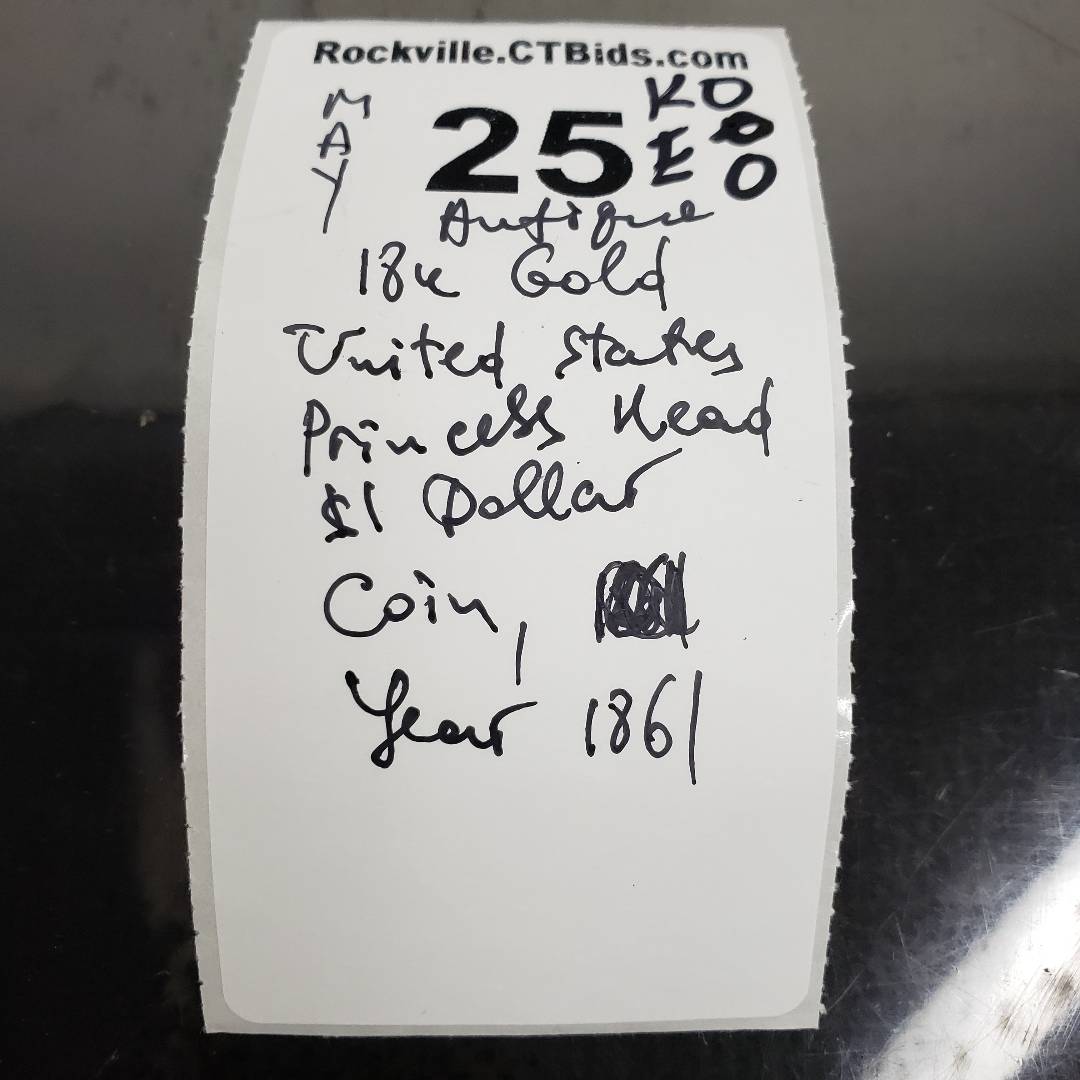 Rockville.CTBids.com
MAY
25
KO
EO
O
Antique
18k Gold
United States
Princess Head
$1 Dollar
Coin,
Year 1861